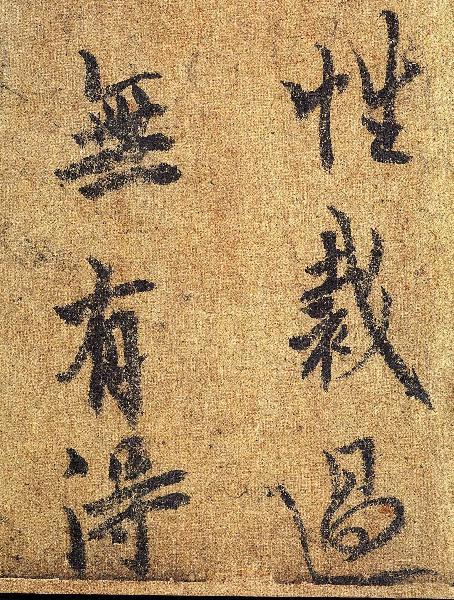 性裁過
無有得